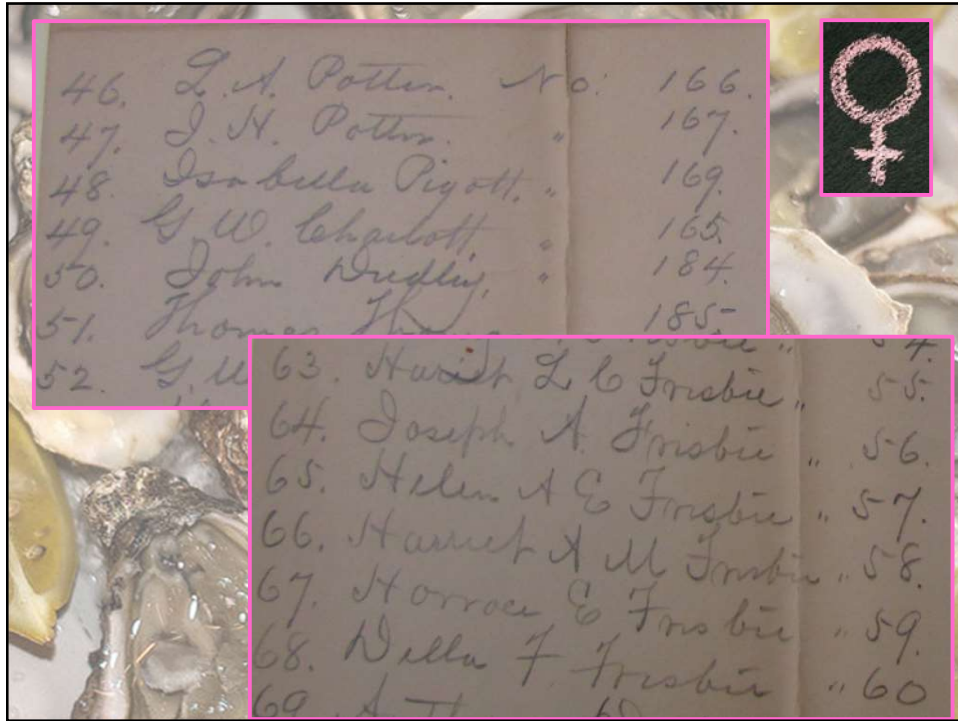 46. L. A. Potter. No. 166.
47. J. H. Potter. " 167.
48. Isabella Pigott. " 169.
49. G. W. Charlott " 165.
50. John Dudley, " 184.
51. Thomas 185
52. G. W
63. Hariet L C Frisbie " 55.
64. Joseph A. Frisbie " 56.
65. Helen A E Frisbie " 57.
66. Harriet A M Frisbie " 58.
67. Horrace E Frisbie " 59.
68. Della F Frisbie " 60
69